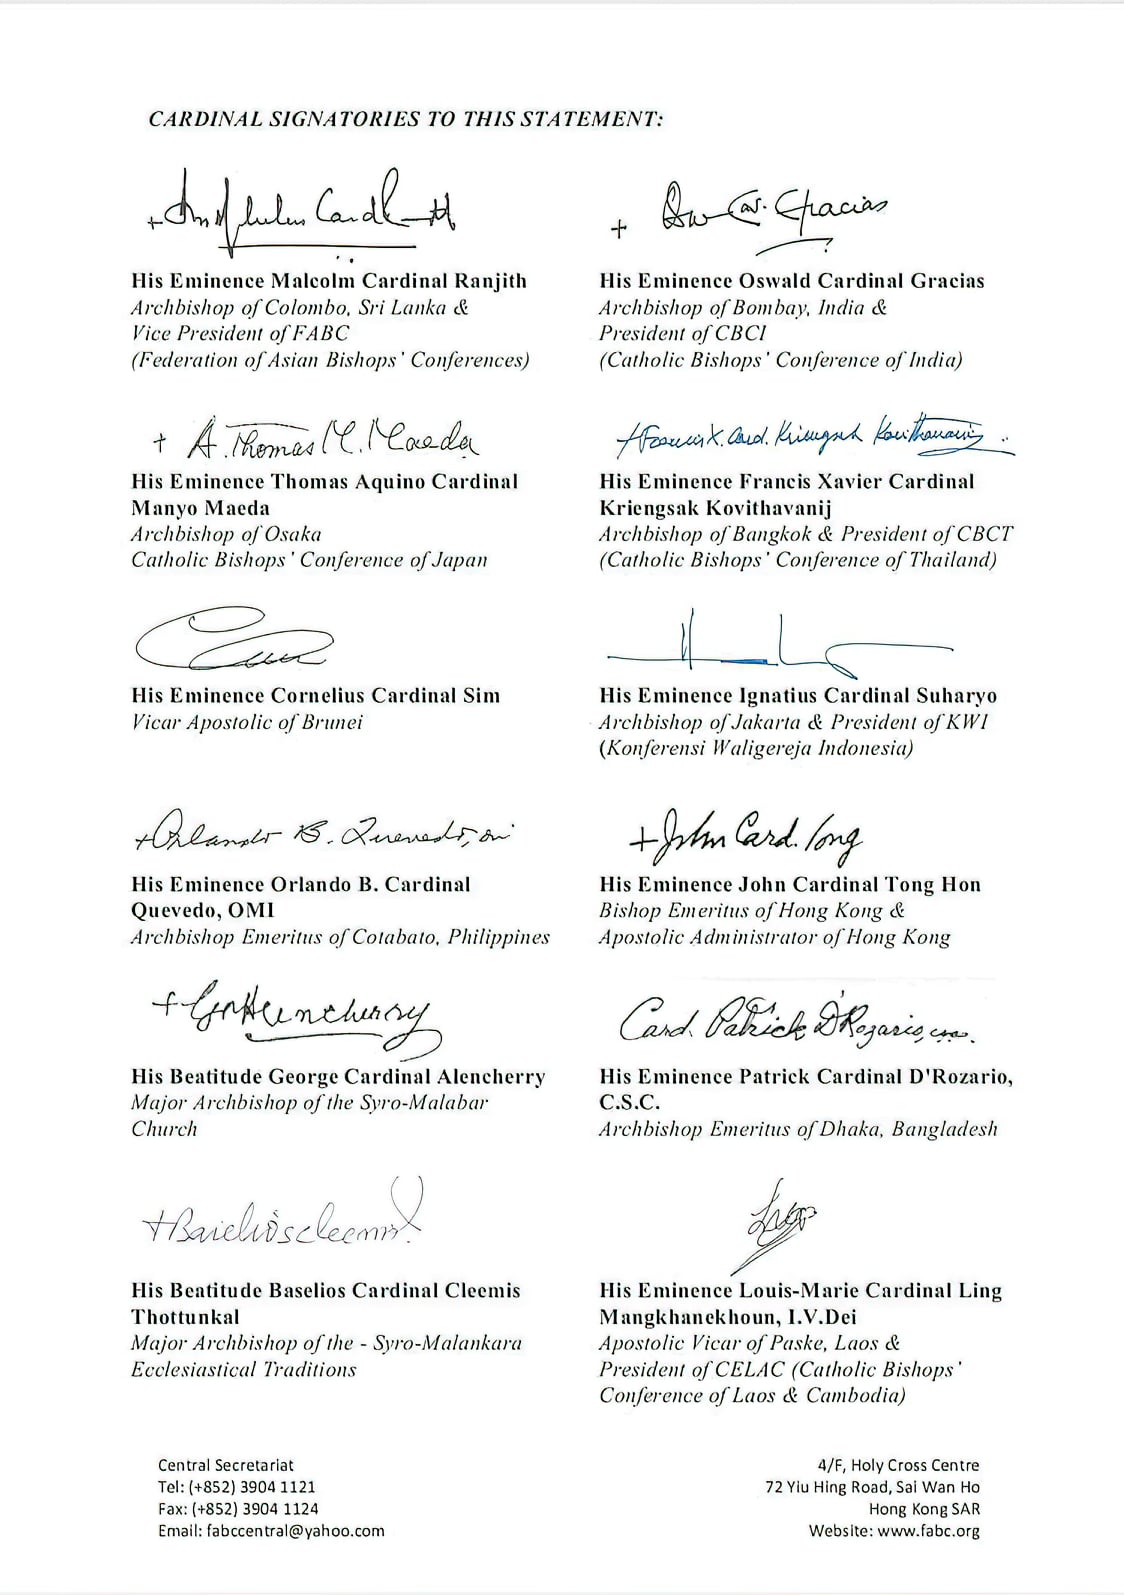 CARDINAL SIGNATORIES TO THIS STATEMENT:
His Eminence Malcolm Cardinal Ranjith
Archbishop of Colombo, Sri Lanka &
Vice President of FABC
(Federation of Asian Bishops' Conferences)
+ Osw Car. Gracias
His Eminence Oswald Cardinal Gracias
Archbishop of Bombay, India &
President of CBCI
(Catholic Bishops' Conference of India)
+ A. Thomas M. Maeda
His Eminence Thomas Aquino Cardinal
Manyo Maeda
Archbishop of Osaka
Catholic Bishops' Conference of Japan
+Francis X. Card. Kriengsak Kovithavanij
His Eminence Francis Xavier Cardinal
Kriengsak Kovithavanij
Archbishop of Bangkok & President of CBCT
(Catholic Bishops' Conference of Thailand)
His Eminence Cornelius Cardinal Sim
Vicar Apostolic of Brunei
His Eminence Ignatius Cardinal Suharyo
Archbishop of Jakarta & President of KWI
(Konferensi Waligereja Indonesia)
+Orlando B. Quevedo, omi
His Eminence Orlando B. Cardinal
Quevedo, OMI
Archbishop Emeritus of Cotabato, Philippines
+John Card. Tong
His Eminence John Cardinal Tong Hon
Bishop Emeritus of Hong Kong &
Apostolic Administrator of Hong Kong
His Beatitude George Cardinal Alencherry
Major Archbishop of the Syro-Malabar
Church
Card. Patrick D'Rozario, csc.
His Eminence Patrick Cardinal D'Rozario,
C.S.C.
Archbishop Emeritus of Dhaka, Bangladesh
+Baselios cleemis
His Beatitude Baselios Cardinal Cleemis
Thottunkal
Major Archbishop of the - Syro-Malankara
Ecclesiastical Traditions
His Eminence Louis-Marie Cardinal Ling
Mangkhanekhoun, I.V.Dei
Apostolic Vicar of Paske, Laos &
President of CELAC (Catholic Bishops'
Conference of Laos & Cambodia)
Central Secretariat
Tel: (+852) 3904 1121
Fax: (+852) 3904 1124
Email: fabccentral@yahoo.com
4/F, Holy Cross Centre
72 Yiu Hing Road, Sai Wan Ho
Hong Kong SAR
Website: www.fabc.org